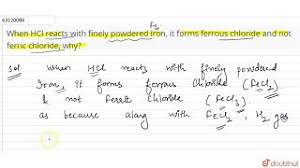 631120098
Fe
When HCl reacts with finely powdered iron, it forms ferrous chloride and not
ferric chloride, why?
Sol when HCl reacts with finely powdered
Iron, it forms ferrous chloride (FeCl2)
& not Ferric chloride (FeCl3)
as because along with FeCl2, H2 gas
doubtnut